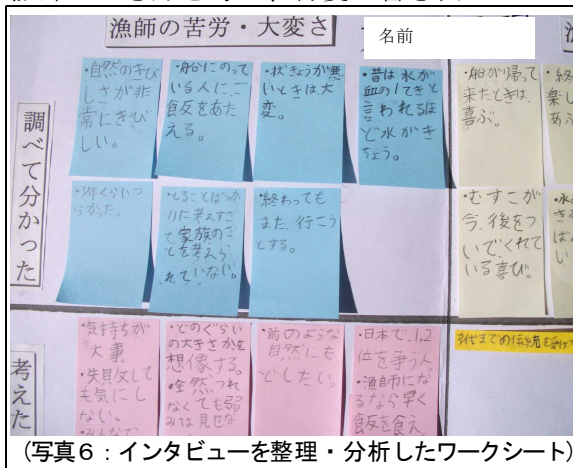 漁師の苦労・大変さ
名前
調べて分かった
・自然のきび
しさが非
常にきび
しい。
・船にのって
いる人にご
飯をあた
える。
・状きょうが悪
いときは、大
変。
・昔は水が
血の1てきと
言われるほ
ど水がき
ちょう。
・船が帰って
来たときは、
喜ぶ。
・終
楽し
あふ
・とることばっか
りに考えすぎ
て家族のこ
とを考えら
れていない。
・終わっても
また、行こう
とする。
・むすこが
今、後をつ
いでくれて
いる喜び。
考えた
・気持ちが
大事
・失敗して
も気にし
ない。
・みんなで
・どのぐらい
の大きさかを
想像する。
・全然つれ
なくても弱
みは見せな
・前のような
自然にも
どしたい。
・日本で、1,2
位を争う人
・漁師にな
るなら早く
飯を食え
(写真6：インタビューを整理・分析したワークシート)